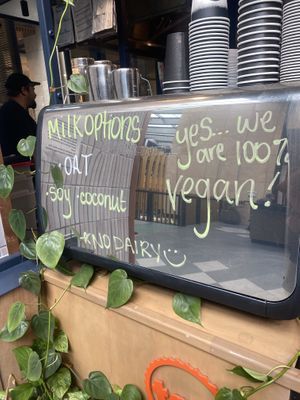 MILK OPTIONS
• OAT
• SOY • COCONUT
NO DAIRY
yes... we
are 100%
vegan!